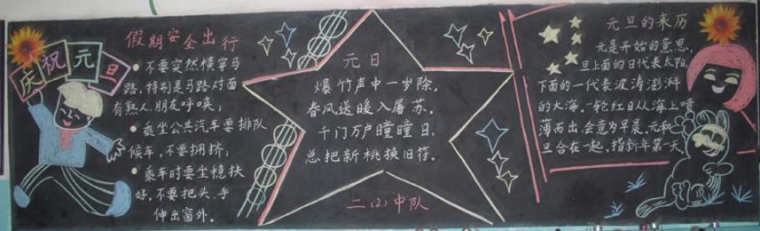 庆祝元旦
假期安全出行
●不要突然横穿马
路,特别是马路对面
有熟人、朋友呼唤;
●乘坐公共汽车要排队
候车,不要拥挤;
●乘车时要坐稳扶
好,不要把头、手
伸出窗外。
元日
爆竹声中一岁除,
春风送暖入屠苏。
千门万户曈曈日,
总把新桃换旧符。
二(2)中队
元旦的来历
元是开始的意思,
旦上面的日代表太阳,
下面的一代表波涛澎湃
的大海。一轮红日从海上喷
薄而出,会意为早晨。元和
旦合在一起,指新年第一天